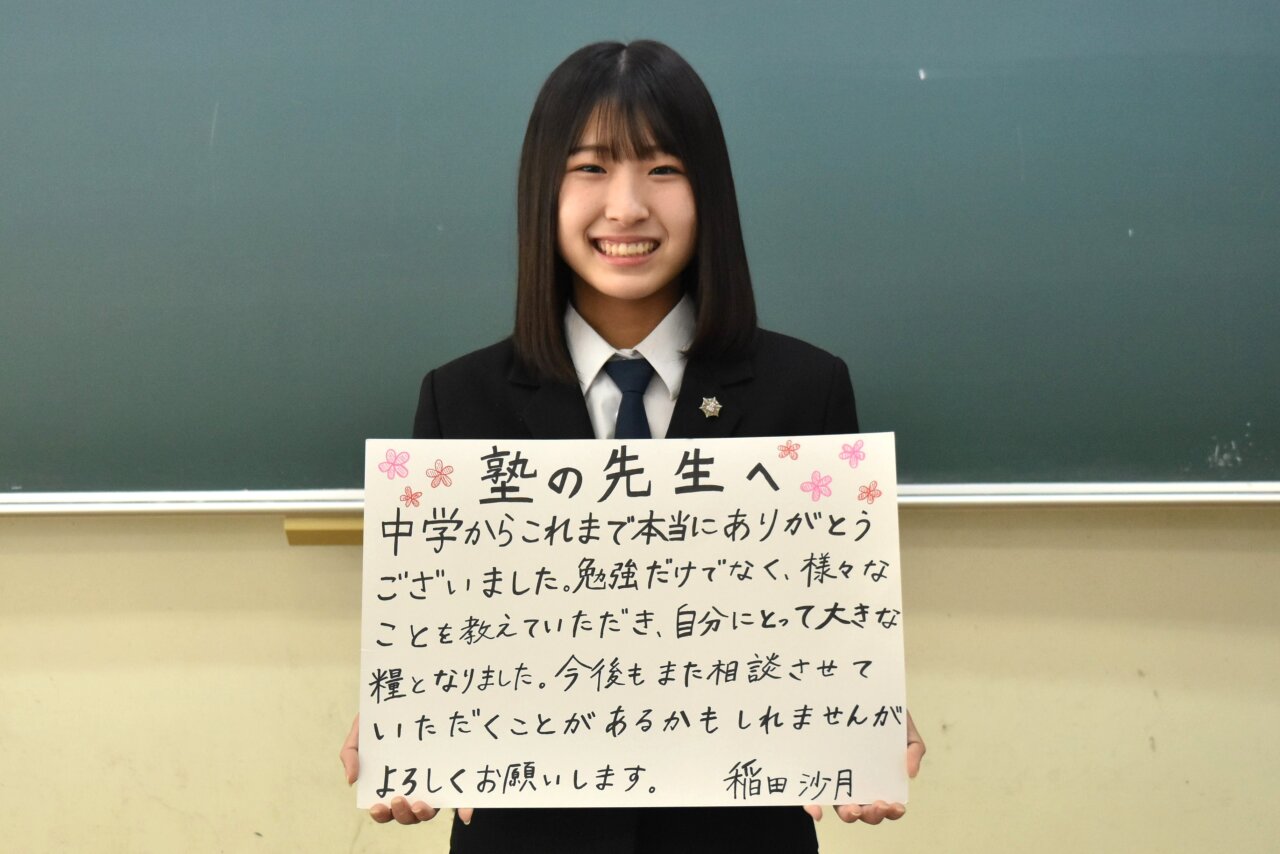 塾の先生へ
中学からこれまで本当にありがとう
ございました。勉強だけでなく、様々な
ことを教えていただき、自分にとって大きな
糧となりました。今後もまた相談させて
いただくことがあるかもしれませんが
よろしくお願いします。 稲田 沙月